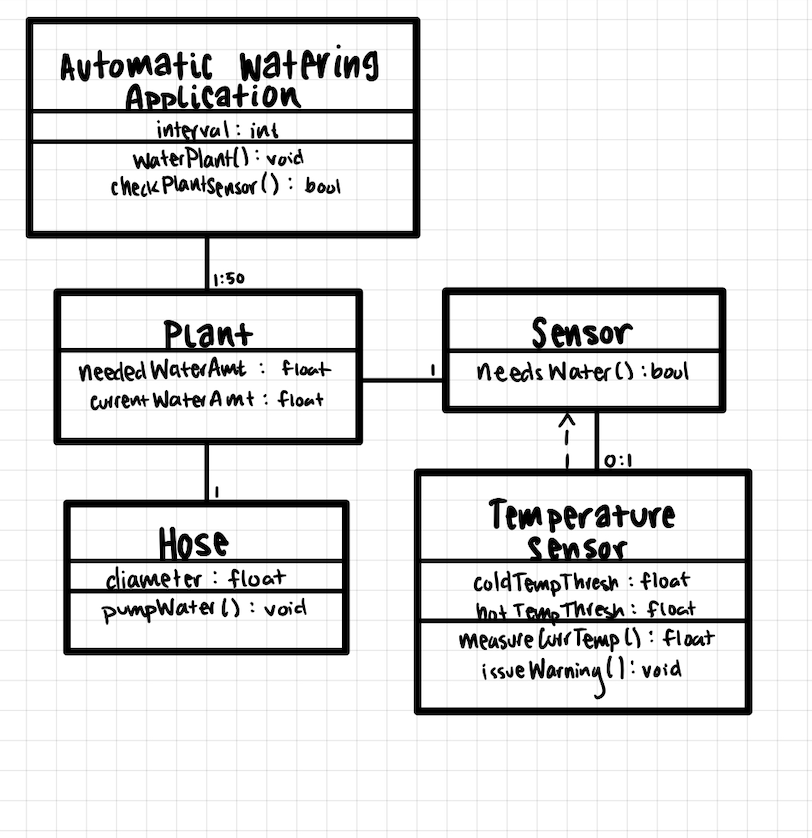 Automatic Watering
Application
interval: int
waterPlant(): void
checkPlantSensor(): bool
1:50
Plant
neededWaterAmt : float
currentWaterAmt: float
1
Sensor
needsWater(): bool
1
Hose
diameter: float
pumpWater(): void
0:1
Temperature
Sensor
coldTempThresh: float
hotTempThresh: float
measureCurrTemp(): float
issueWarning(): void